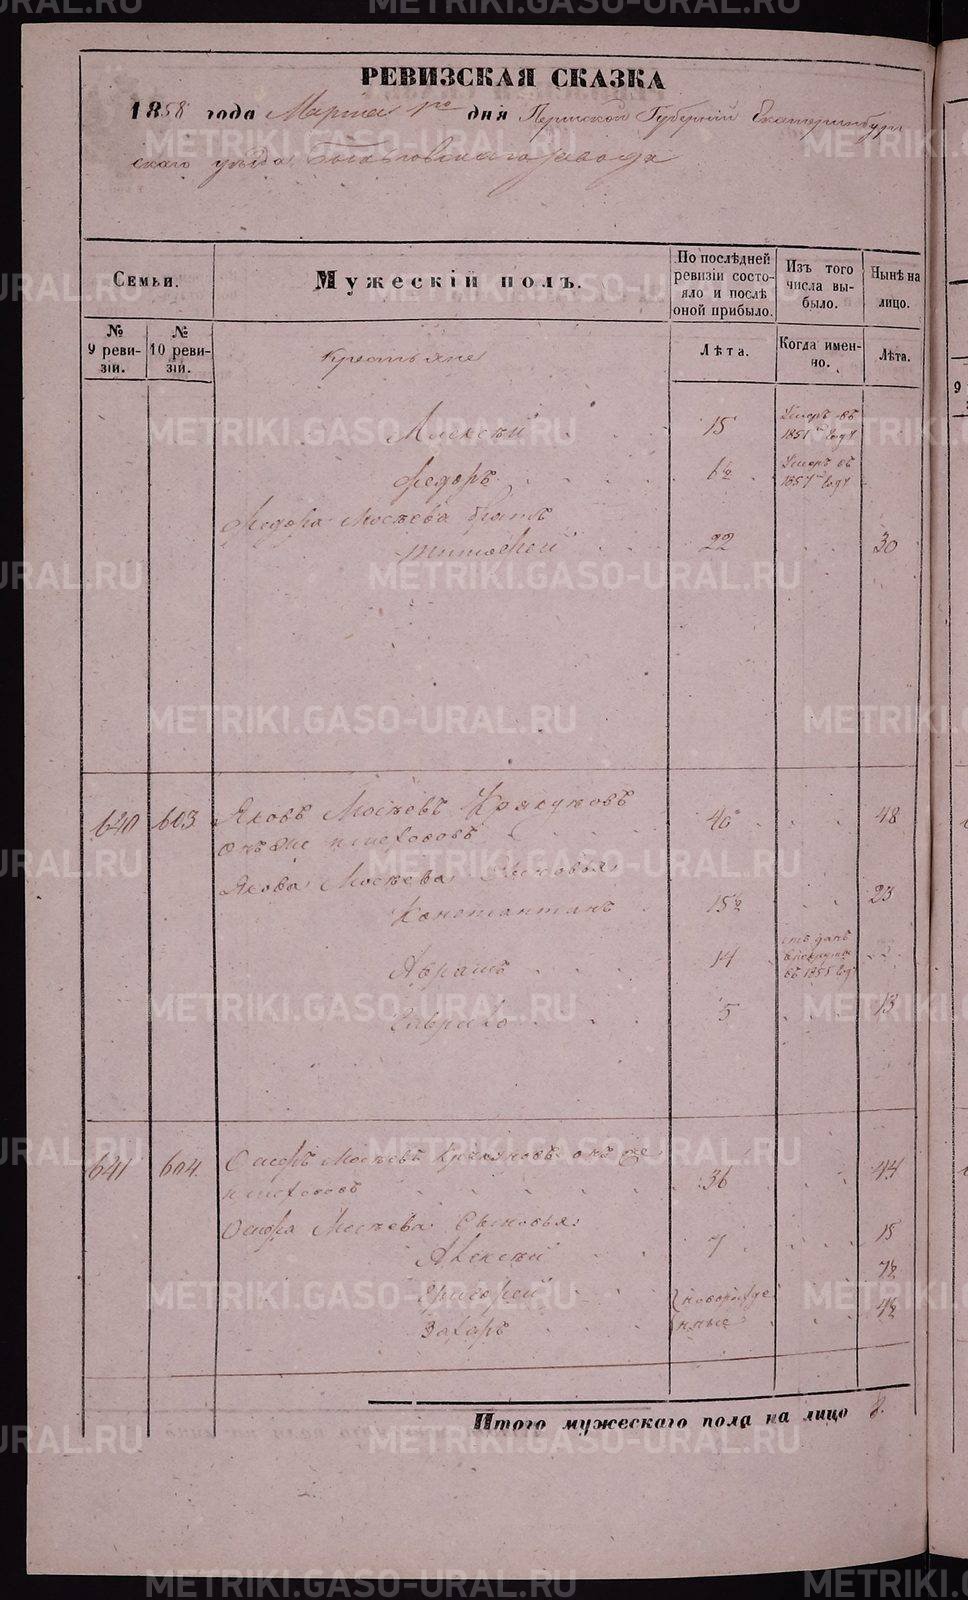 РЕВИЗСКАЯ СКАЗКА
1858 года Марта 1го дня Пермской Губерніи Екатеринбург
скаго уѣзда завода
Семьи.
Мужескій полъ.
По послѣдней ревизіи состояло и послѣ оной прибыло.
Изъ того числа выбыло.
Нынѣ на лицо.
№ 9 ревизіи.
№ 10 ревизіи.
Лѣта.
Когда именно.
Лѣта.
Крестьяне
Алексѣй 15 Умеръ въ 1851 году
Федоръ 1½ Умеръ въ 1857 году
Федора Мосѣева братъ
Тимофей 22 30
640 603 Яковъ Мосѣевъ 40 48
онъ же
Якова Мосѣева Сыновья
Константинъ 15½ 23
Абрамъ 14 въ 1855 году
Гаврило 5 13
641 604 Осифъ Мосѣевъ онъ же 36 44
Осифа Мосѣева Сыновья
Алексѣй 7 15
Григорей новорожде 7½
Захаръ нные 4½
Итого мужескаго пола на лицо 8.
METRIKI.GASO-URAL.RU